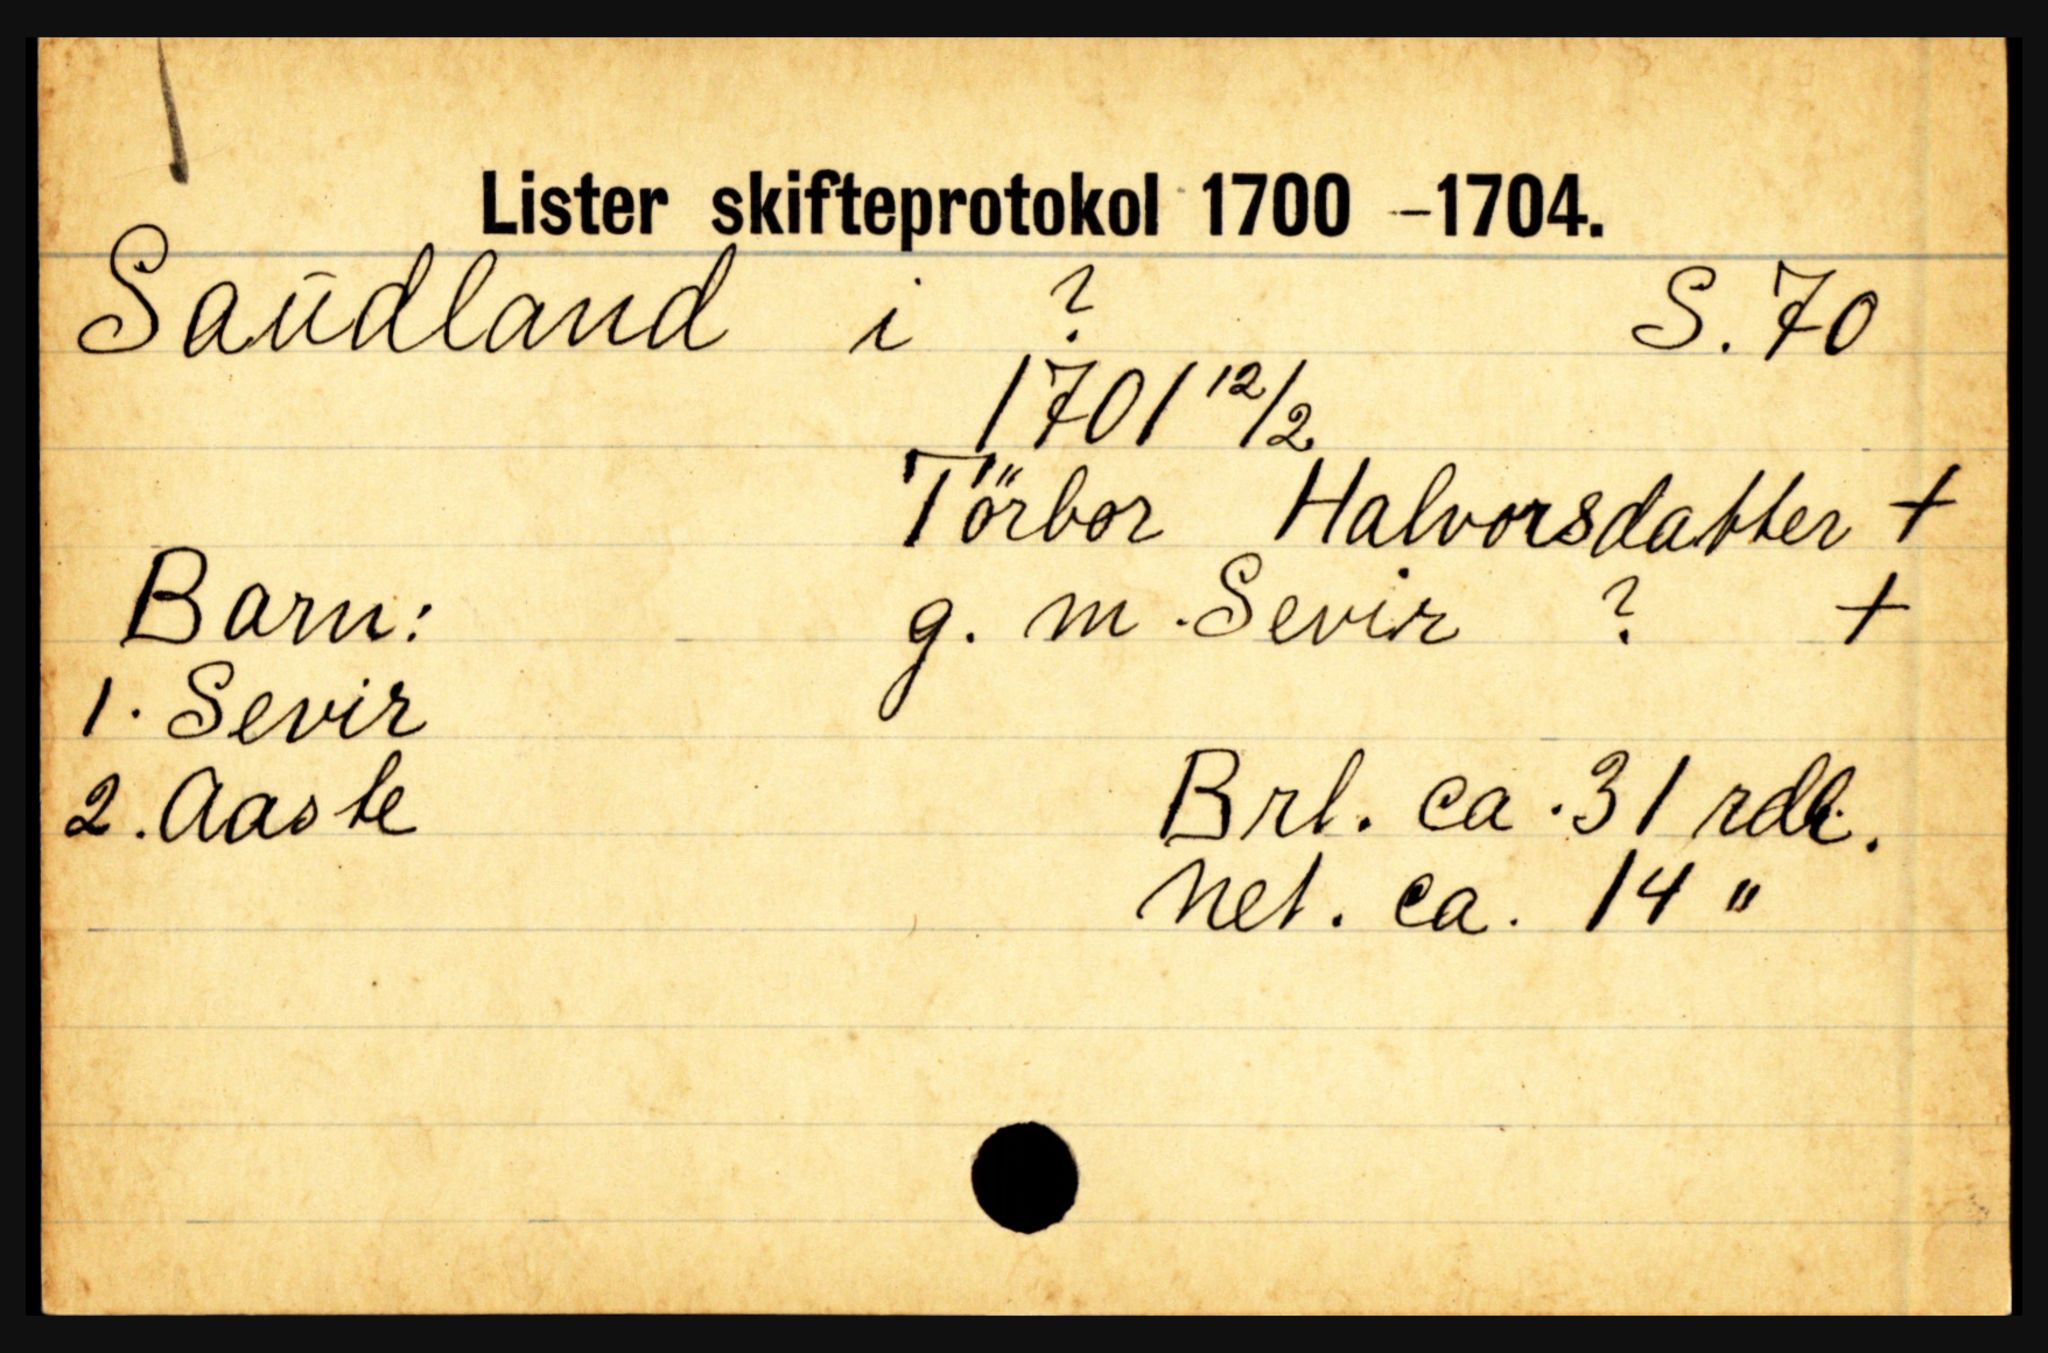 Lister skifteprotokol 1700 -1704.
Saūdland i ? S. 70
1701 12/2
Törbor Halvorsdatter +
Barn: g. m. Sevir ? +
1. Sevir
2. Aaste Brt. ca. 31 rdl.
Net. ca. 14 "